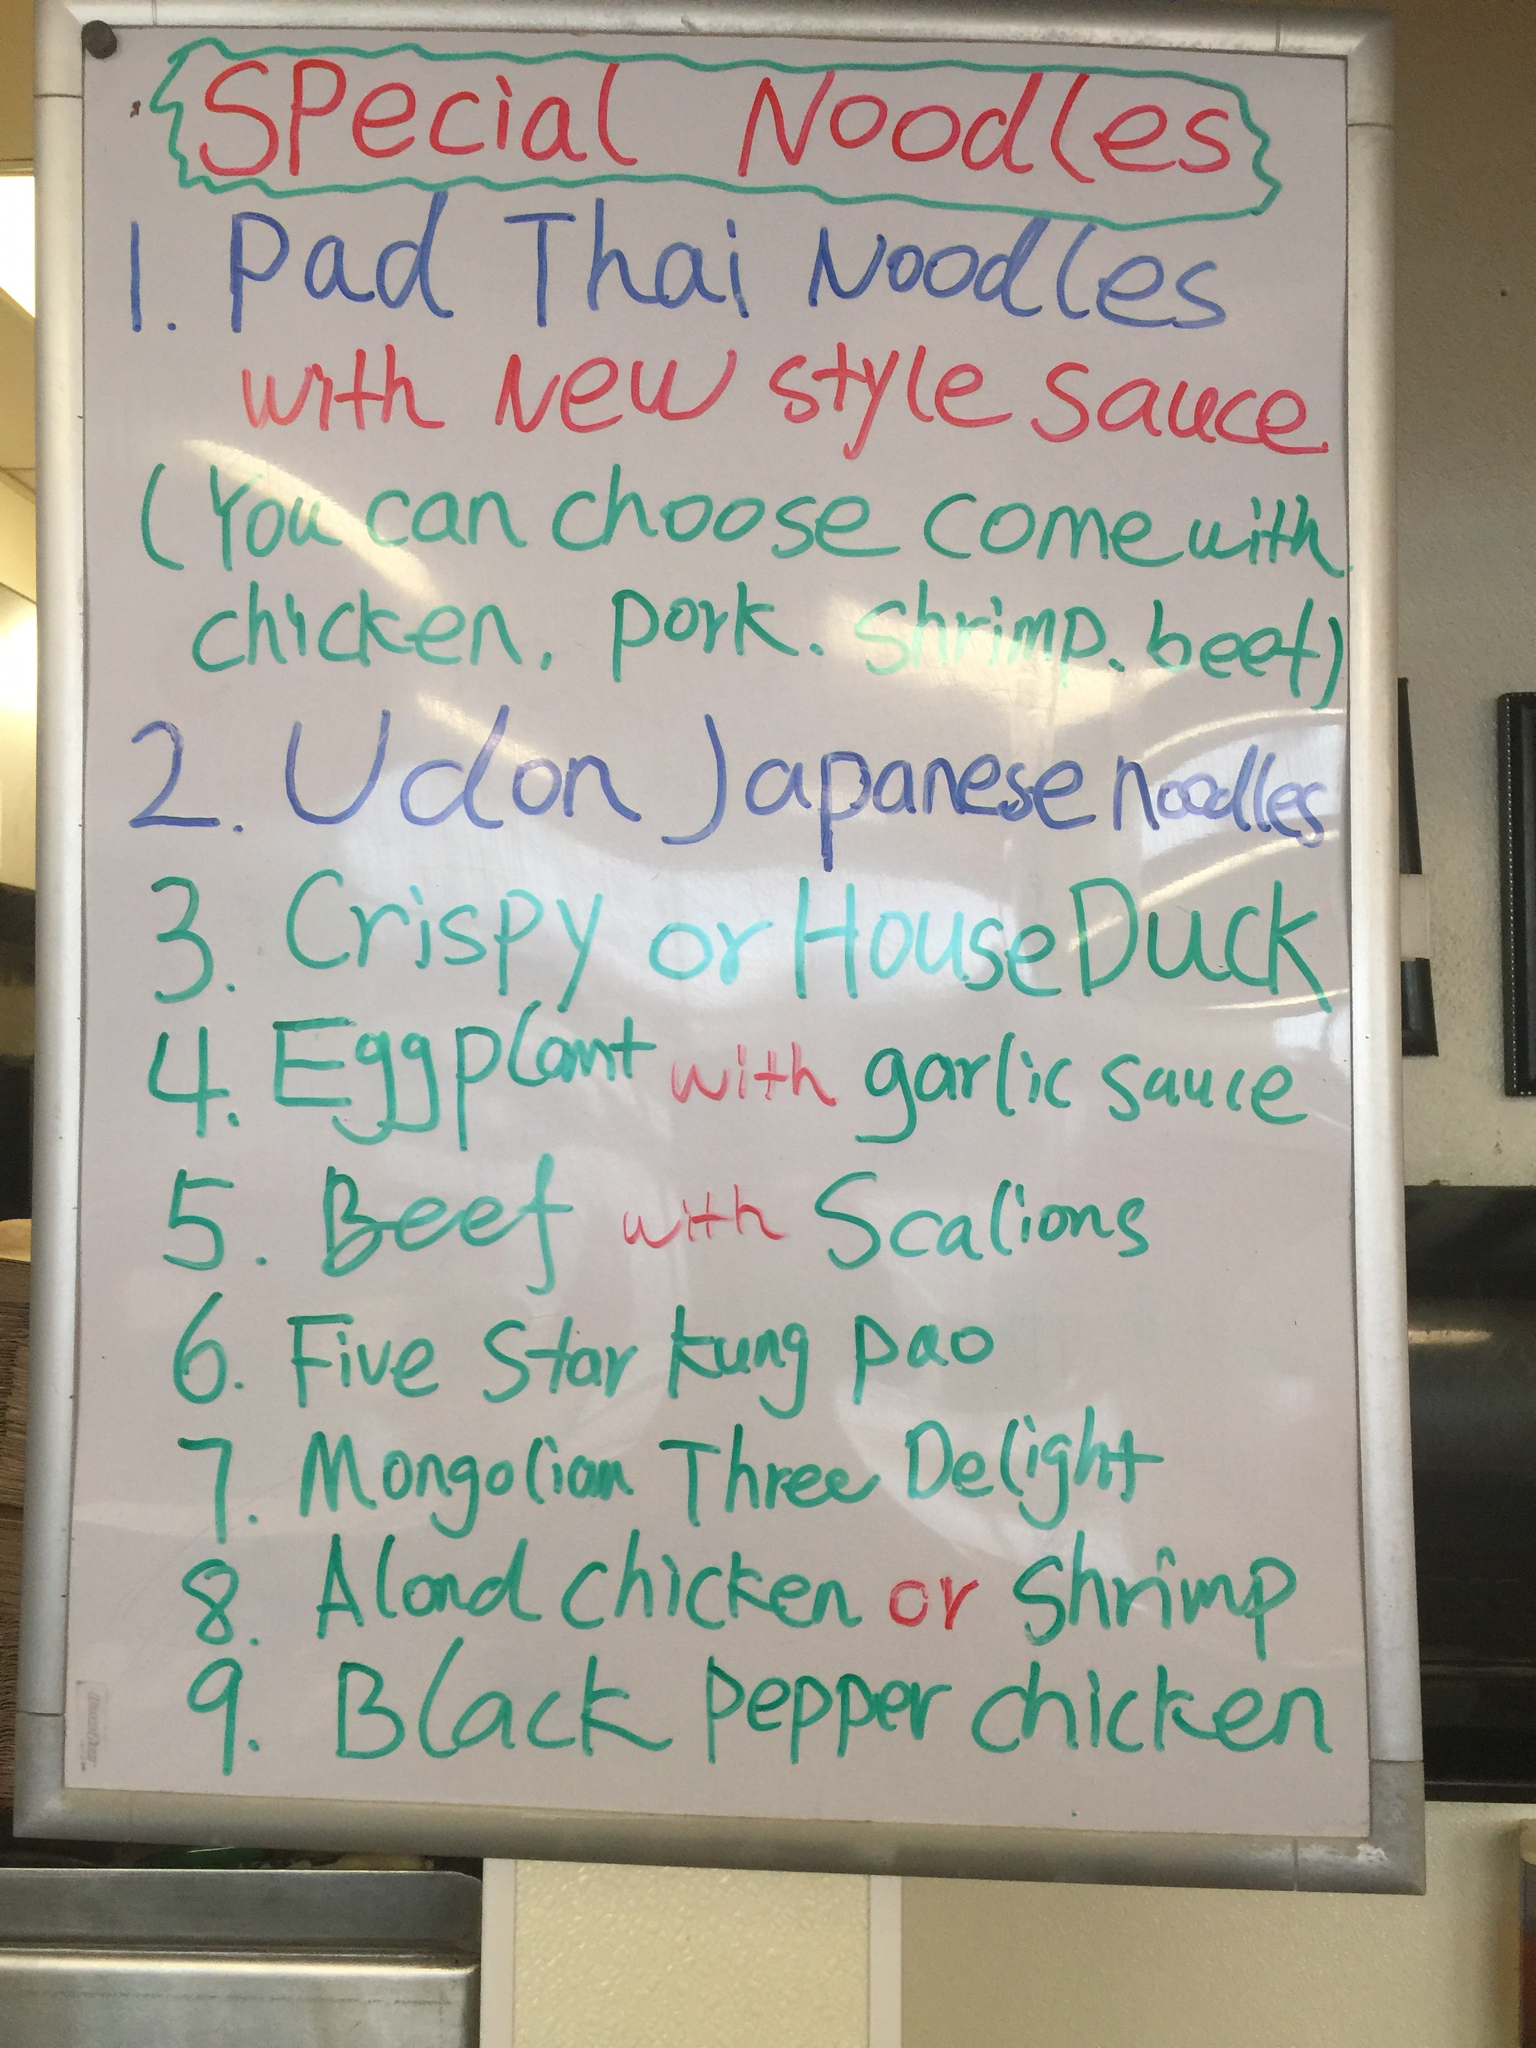 SPecial Noodles
1. Pad Thai Noodles
with New style sauce
(You can choose come with
chicken. pork. shrimp. beef)
2. Udon Japanese noodles
3. Crispy or House Duck
4. Eggplant with garlic sauce
5. Beef with Scalions
6. Five Star kung pao
7. Mongolian Three Delight
8. Alond chicken or shrimp
9. Black pepper chicken